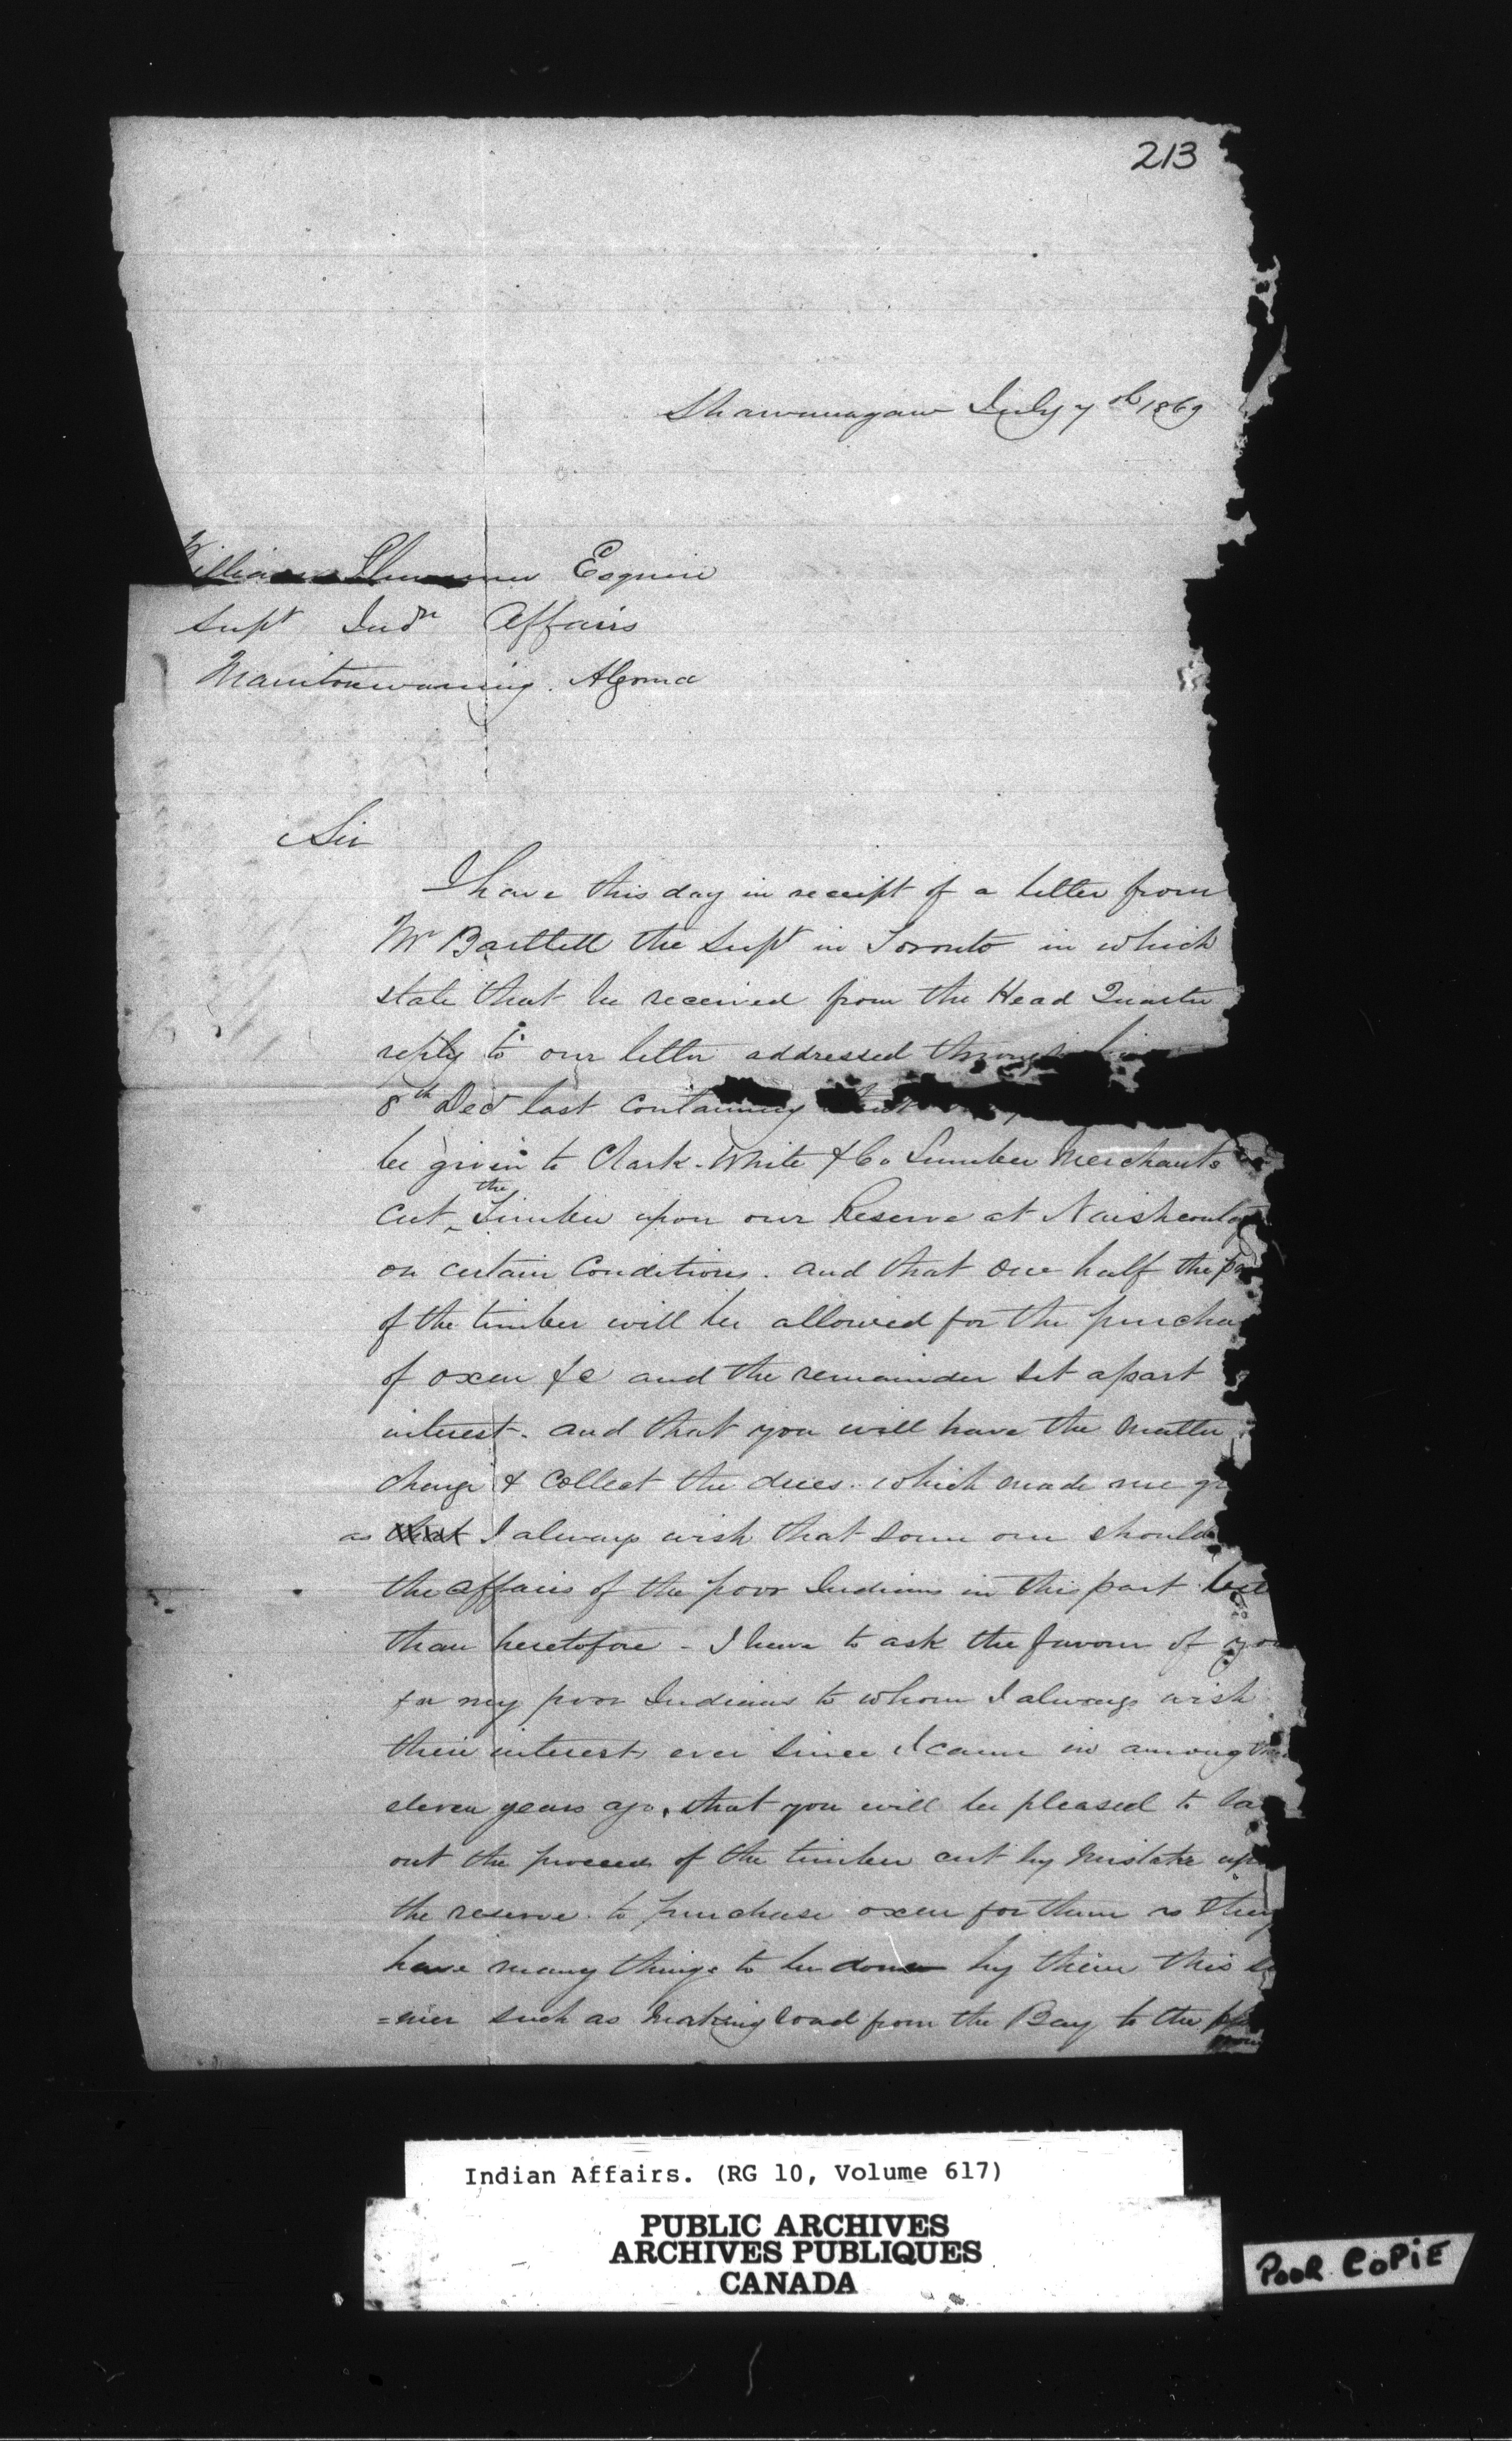 213
Shawanagaw July 7th 1869
William Esquire
Supt Indn Affairs
Manitouwaning. Algoma
Sir
I have this day in receipt of a letter from
Mr Bartlett the Supt in Toronto in which
state that he received from the Head Quarter
reply to our letter addressed through
8th Decr last containing that
be given to Clark. White & Co Lumber Merchants
cut the Timber upon our Reserve at
on certain Conditions. and that One half the
of the timber will be allowed for the purcha
of oxen &c and the remainder set apart
interest. and that you will have the Matter
charge & Collect the dues. which made me
as that I always wish that some one should
the affairs of the poor Indians in this part
than heretofore - I have to ask the favour of you
for my poor Indians to whom I always wish
their interest ever since I came in among
eleven years ago. that you will be pleased to
out the proceeds of the timber cut by Mistake
the reserve. to purchase oxen for them as they
have many things to be done by them this
=mer such as making road from the Bay to the
Indian Affairs. (RG 10, Volume 617)
PUBLIC ARCHIVES
ARCHIVES PUBLIQUES
CANADA
POOR COPIE